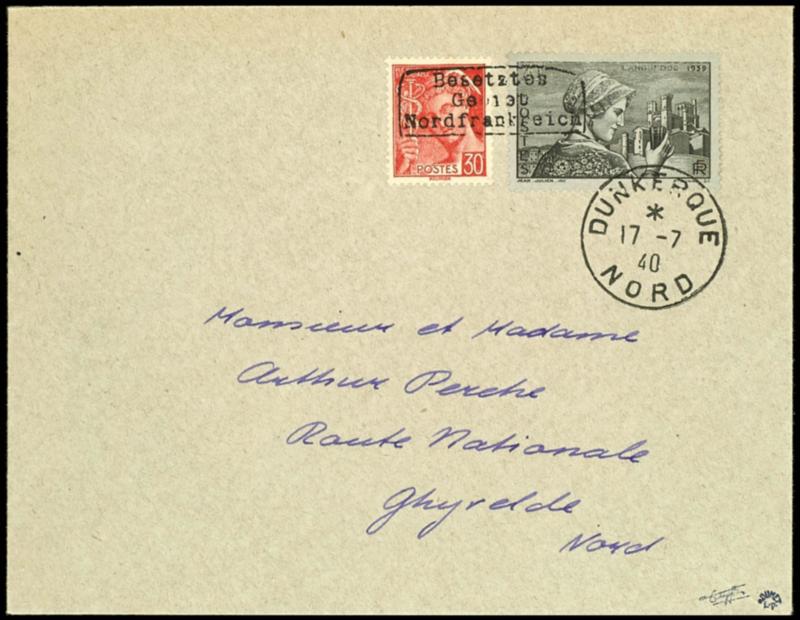 Besetztes
Gebiet
Nordfrankreich
POSTES 30
LANGUEDOC 1939
POSTES
RF
DUNKERQUE
*
17 -7
40
NORD
Monsieur et Madame
Arthur Perche
Route Nationale
Ghyvelde
Nord